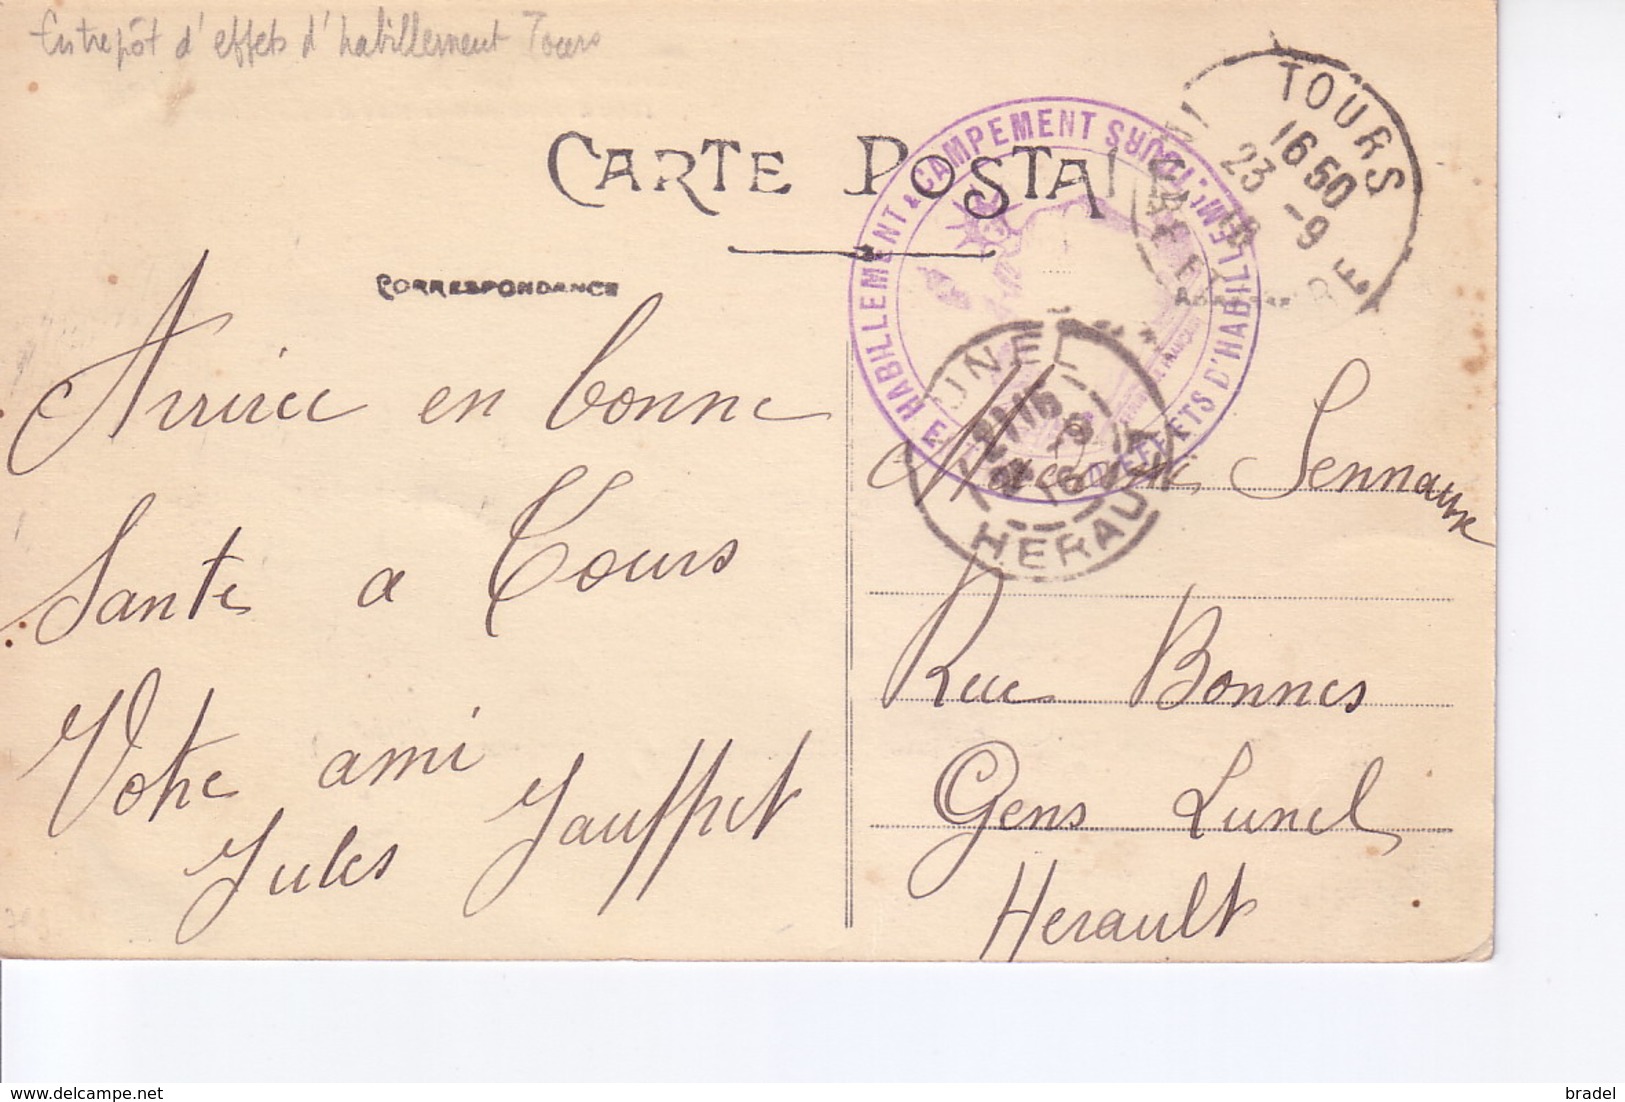 Entrepôt d'effets d'habillement Tours
CARTE POSTALE
CORRESPONDANCE
TOURS
16 50
23 -9
16
HABILLEMENT & CAMPEMENT TOURS
D'EFFETS D'HABILLEMt
LUNEL
16
HERAULT
Arrivée en bonne
Sante a Tours
Votre ami
Jules Jauffret
Sennaux
Rue Bonnes
Gens Lunel
Herault
bradel